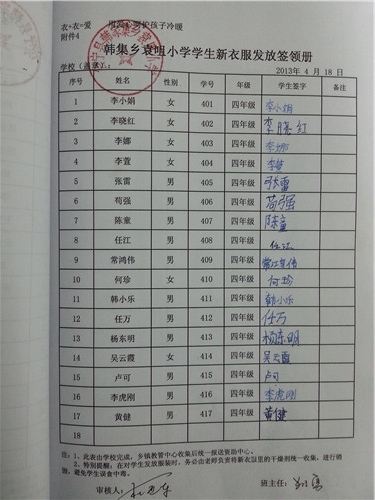 衣+衣=爱
附件4
韩集乡袁咀小学学生新衣服发放签领册
学校(盖章): 2013年 4 月 18 日
序号 姓名 性别 学号 年级 学生签字 备注
1 李小娟 女 401 四年级 李小娟
2 李晓红 女 402 四年级 李晓红
3 李娜 女 403 四年级 李娜
4 李萱 女 404 四年级 李萱
5 张雷 男 405 四年级 张雷
6 苟强 男 406 四年级 苟强
7 陈童 男 407 四年级 陈童
8 任江 男 408 四年级 任江
9 常鸿伟 男 409 四年级
10 何珍 女 410 四年级 何珍
11 韩小乐 男 411 四年级 韩小乐
12 任万 男 412 四年级 任万
13 杨东明 男 413 四年级 杨东明
14 吴云霞 女 414 四年级 吴云霞
15 卢可 男 415 四年级 卢可
16 李虎刚 男 416 四年级 李虎刚
17 黄健 男 417 四年级 黄健
18
注:1、此表由学校完成,乡镇教管中心收集后统一报送资助中心。
2、特别提醒:在对学生发放服装时,务必由老师负责将新衣以里的干燥剂统一收集、进行销
毁,避免学生误食中毒。
审核人: 班主任: